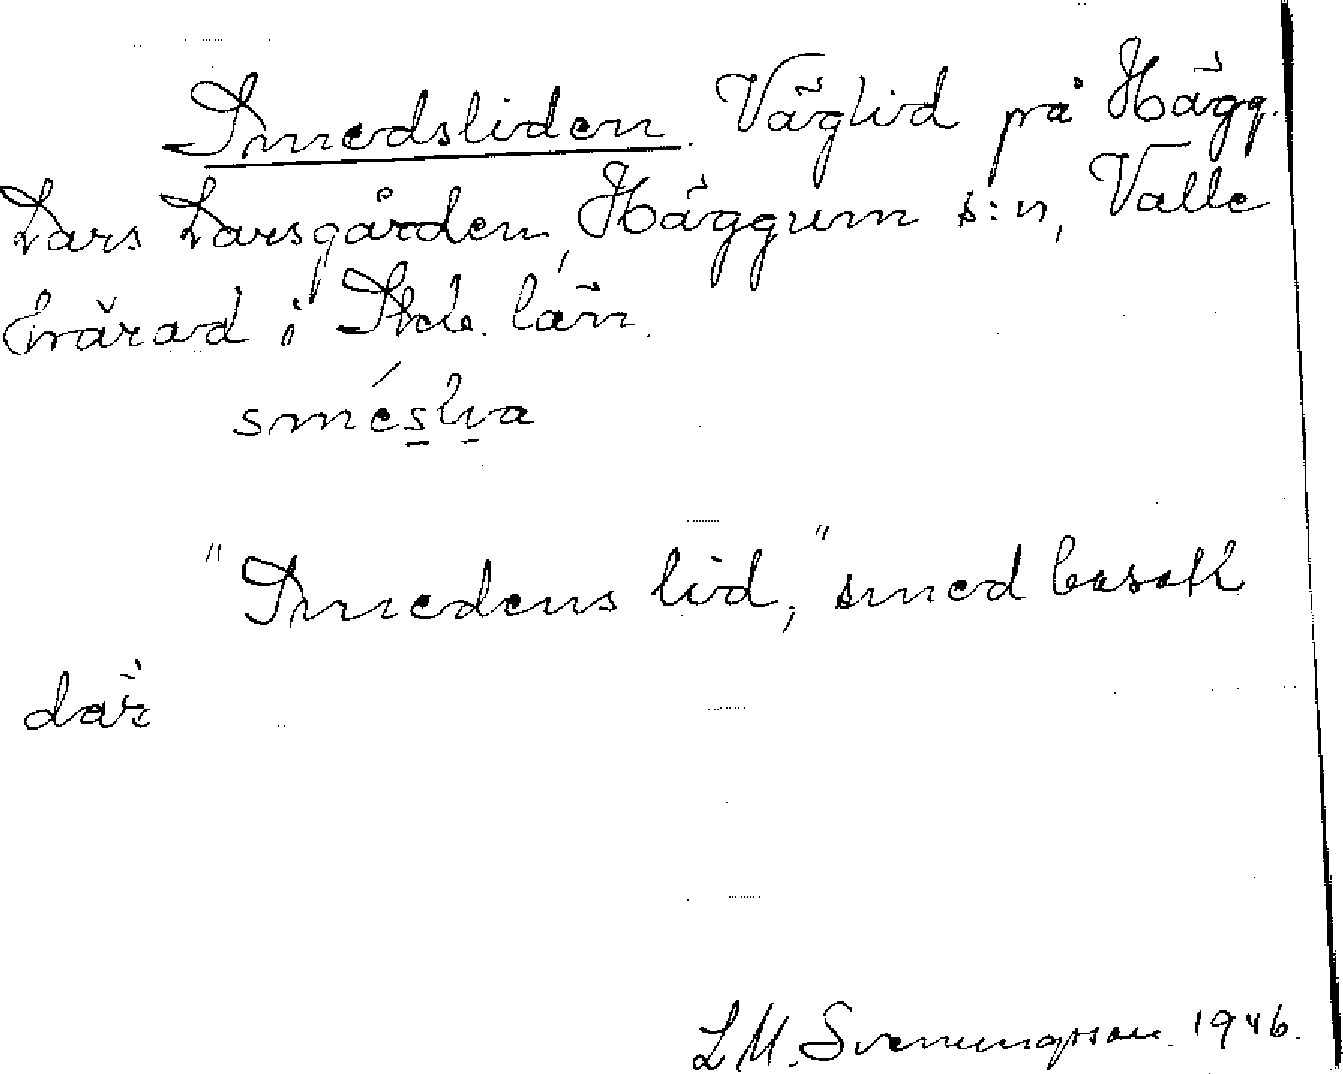 Smedsliden. Väglid på Hägg.
Lars Larsgården, Häggum s:n, Valle
härad i Skb. län.
smésli̱a
"Smedens lid," smed bosatt
där
L M. Svenungsson. 1946.